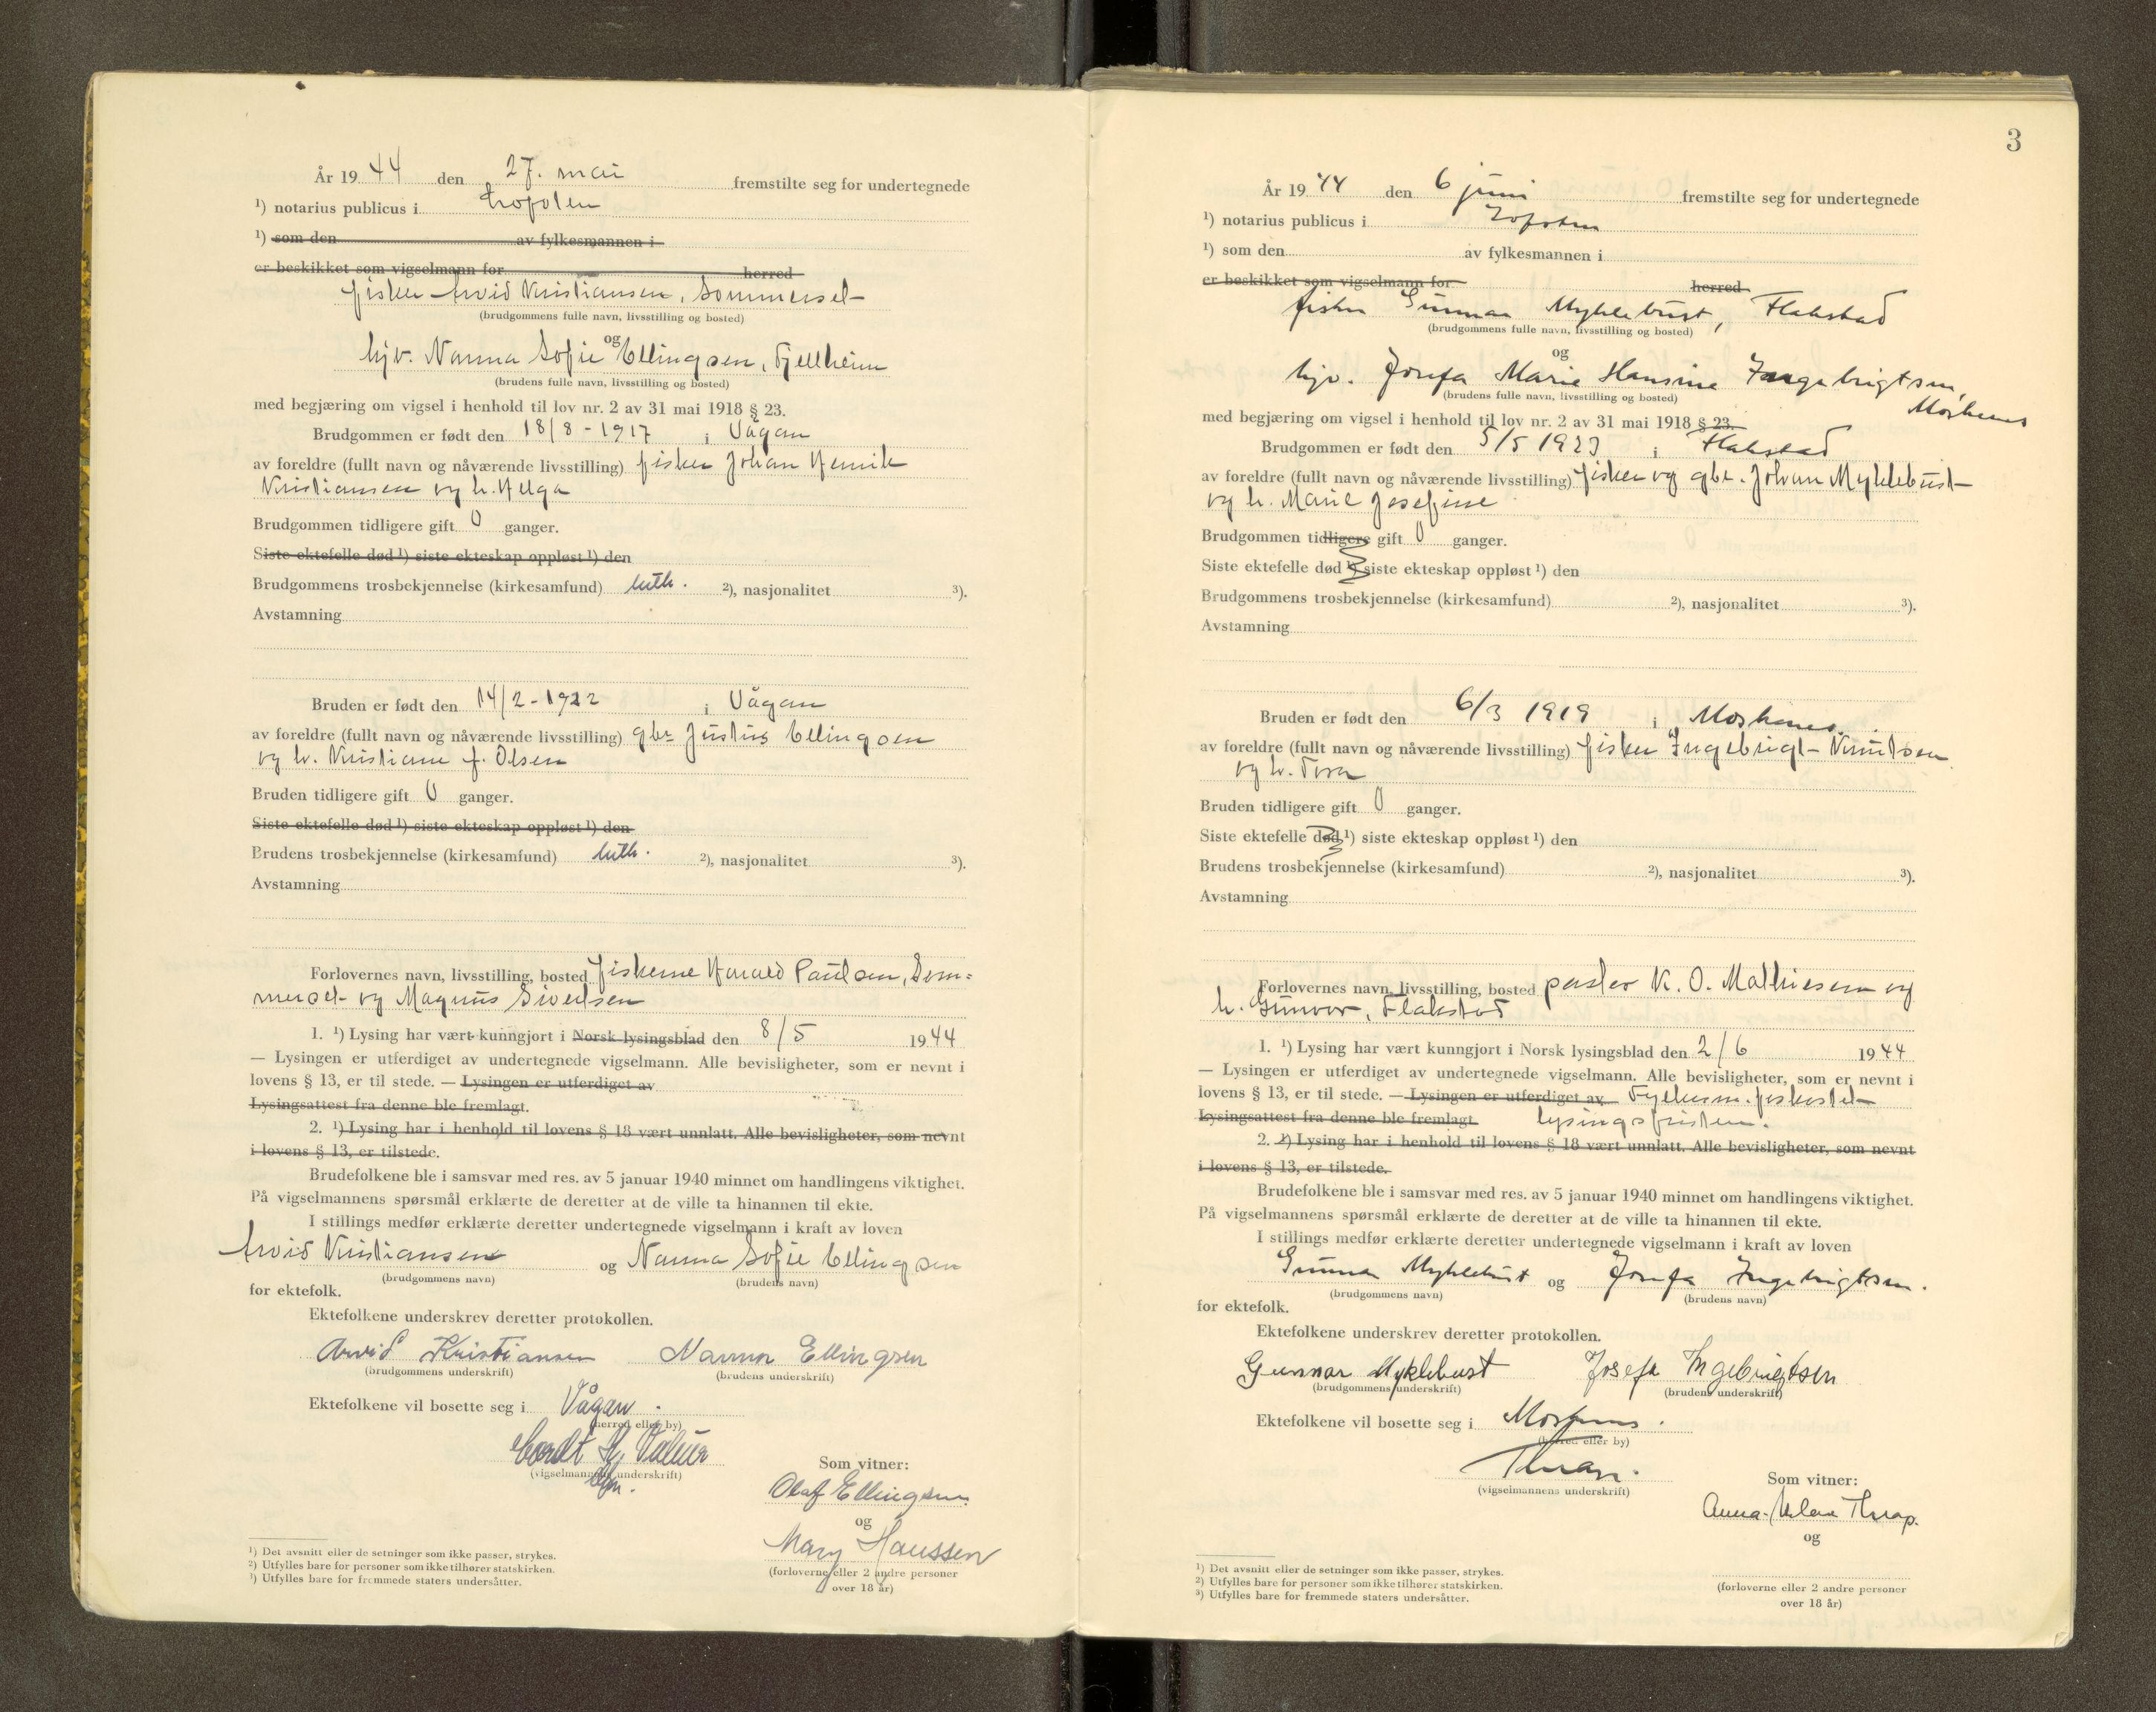 År 19 44 den 27. mai fremstilte seg for undertegnede
¹) notarius publicus i Lofoten
¹) som den av fylkesmannen i
er beskikket som vigselmann for herred
fisker Arvid Kristiansen, Sommersel
(brudgommens fulle navn, livsstilling og bosted)
og
hjv. Nanna Sofie Ellingsen, Fjellheim
(brudens fulle navn, livsstilling og bosted)
med begjæring om vigsel i henhold til lov nr. 2 av 31 mai 1918 § 23.
Brudgommen er født den 18/8 - 1917 i Vågan
av foreldre (fullt navn og nåværende livsstilling) fisker Johan Henrik
Kristiansen og h. Helga
Brudgommen tidligere gift 0 ganger.
Siste ektefelle død ¹) siste ekteskap oppløst ¹) den
Brudgommens trosbekjennelse (kirkesamfund) luth. ²), nasjonalitet ³).
Avstamning
Bruden er født den 14/2 - 1922 i Vågan
av foreldre (fullt navn og nåværende livsstilling) gbr Justus Ellingsen
og h. Kristiane f. Olsen
Bruden tidligere gift 0 ganger.
Siste ektefelle død ¹) siste ekteskap oppløst ¹) den
Brudens trosbekjennelse (kirkesamfund) luth. ²), nasjonalitet ³).
Avstamning
Forlovernes navn, livsstilling, bosted fiskerne Harald Paulsen, Som=
mersel og Magnus Sivertsen
1. ¹) Lysing har vært kunngjort i Norsk lysingsblad den 8/5 1944
— Lysingen er utferdiget av undertegnede vigselmann. Alle bevisligheter, som er nevnt i
lovens § 13, er til stede. — Lysingen er utferdiget av
Lysingsattest fra denne ble fremlagt.
2. ¹) Lysing har i henhold til lovens § 18 vært unnlatt. Alle bevisligheter, som nevnt
i lovens § 13, er tilstede.
Brudefolkene ble i samsvar med res. av 5 januar 1940 minnet om handlingens viktighet.
På vigselmannens spørsmål erklærte de deretter at de ville ta hinannen til ekte.
I stillings medfør erklærte deretter undertegnede vigselmann i kraft av loven
Arvid Kristiansen og Nanna Sofie Ellingsen
(brudgommens navn) (brudens navn)
for ektefolk.
Ektefolkene underskrev deretter protokollen.
Arvid Kristiansen Nanna Ellingsen
(brudgommens underskrift) (brudens underskrift)
Ektefolkene vil bosette seg i Vågan.
(herred eller by)
(vigselmannens underskrift)
Som vitner:
Olaf Ellingsen
og
Mary Haussen
(forloverne eller 2 andre personer
over 18 år)
¹) Det avsnitt eller de setninger som ikke passer, strykes.
²) Utfylles bare for personer som ikke tilhører statskirken.
³) Utfylles bare for fremmede staters undersåtter.
3
År 19 44 den 6 juni fremstilte seg for undertegnede
¹) notarius publicus i Lofoten
¹) som den av fylkesmannen i
er beskikket som vigselmann for herred
fisker Gunnar Myklebust, Flakstad
(brudgommens fulle navn, livsstilling og bosted)
og
hjv. Josefa Marie Hansine Ingebrigtsen,
Moskenes
(brudens fulle navn, livsstilling og bosted)
med begjæring om vigsel i henhold til lov nr. 2 av 31 mai 1918 § 23.
Brudgommen er født den 5/5 1923 i Flakstad
av foreldre (fullt navn og nåværende livsstilling) fisker og gbr. Johan Myklebust
og h. Marie Josefine
Brudgommen tidligere gift 0 ganger.
Siste ektefelle død ¹) siste ekteskap oppløst ¹) den
Brudgommens trosbekjennelse (kirkesamfund) ²), nasjonalitet ³).
Avstamning
Bruden er født den 6/3 1919 i Moskenes
av foreldre (fullt navn og nåværende livsstilling) fisker Ingebrigt Knutsen
og h. Tora
Bruden tidligere gift 0 ganger.
Siste ektefelle død ¹) siste ekteskap oppløst ¹) den
Brudens trosbekjennelse (kirkesamfund) ²), nasjonalitet ³).
Avstamning
Forlovernes navn, livsstilling, bosted pastor K. O. Mathiesen og
h. Gunvor, Flakstad
1. ¹) Lysing har vært kunngjort i Norsk lysingsblad den 2/6 1944
— Lysingen er utferdiget av undertegnede vigselmann. Alle bevisligheter, som er nevnt i
lovens § 13, er til stede. — Lysingen er utferdiget av Fylkesm. forkortet
Lysingsattest fra denne ble fremlagt lysingsfristen.
2. ¹) Lysing har i henhold til lovens § 18 vært unnlatt. Alle bevisligheter, som nevnt
i lovens § 13, er tilstede.
Brudefolkene ble i samsvar med res. av 5 januar 1940 minnet om handlingens viktighet.
På vigselmannens spørsmål erklærte de deretter at de ville ta hinannen til ekte.
I stillings medfør erklærte deretter undertegnede vigselmann i kraft av loven
Gunnar Myklebust og Josefa Ingebrigtsen.
(brudgommens navn) (brudens navn)
for ektefolk.
Ektefolkene underskrev deretter protokollen.
Gunnar Myklebust Josefa Ingebrigtsen
(brudgommens underskrift) (brudens underskrift)
Ektefolkene vil bosette seg i Moskenes.
(herred eller by)
(vigselmannens underskrift)
Som vitner:
Anna Thrap.
og
(forloverne eller 2 andre personer
over 18 år)
¹) Det avsnitt eller de setninger som ikke passer, strykes.
²) Utfylles bare for personer som ikke tilhører statskirken.
³) Utfylles bare for fremmede staters undersåtter.